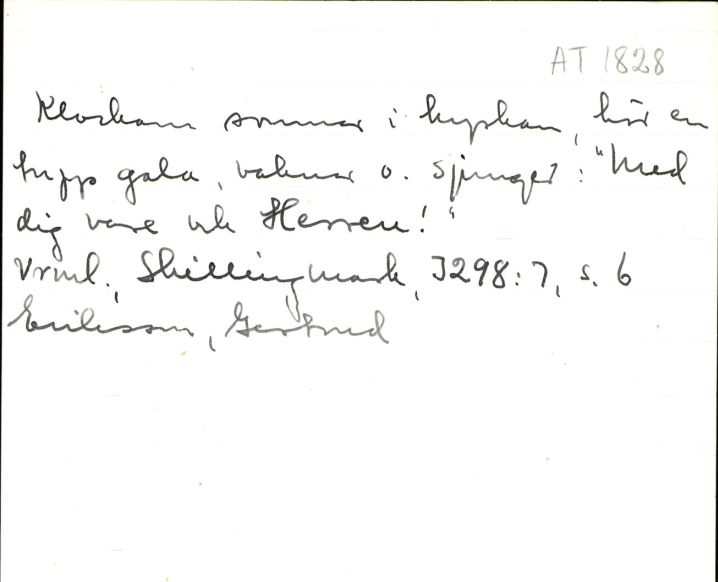 AT 1828
Klockarn somnar i kyrkan, hör en
tupp gala, vaknar o. sjunger: "Med
dig vare ock Herren!"
Vrml., Skillingmark, I298:7, s. 6
Eriksson, Gertrud